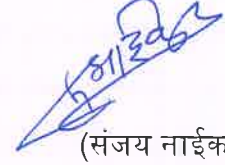 (संजय नाईक